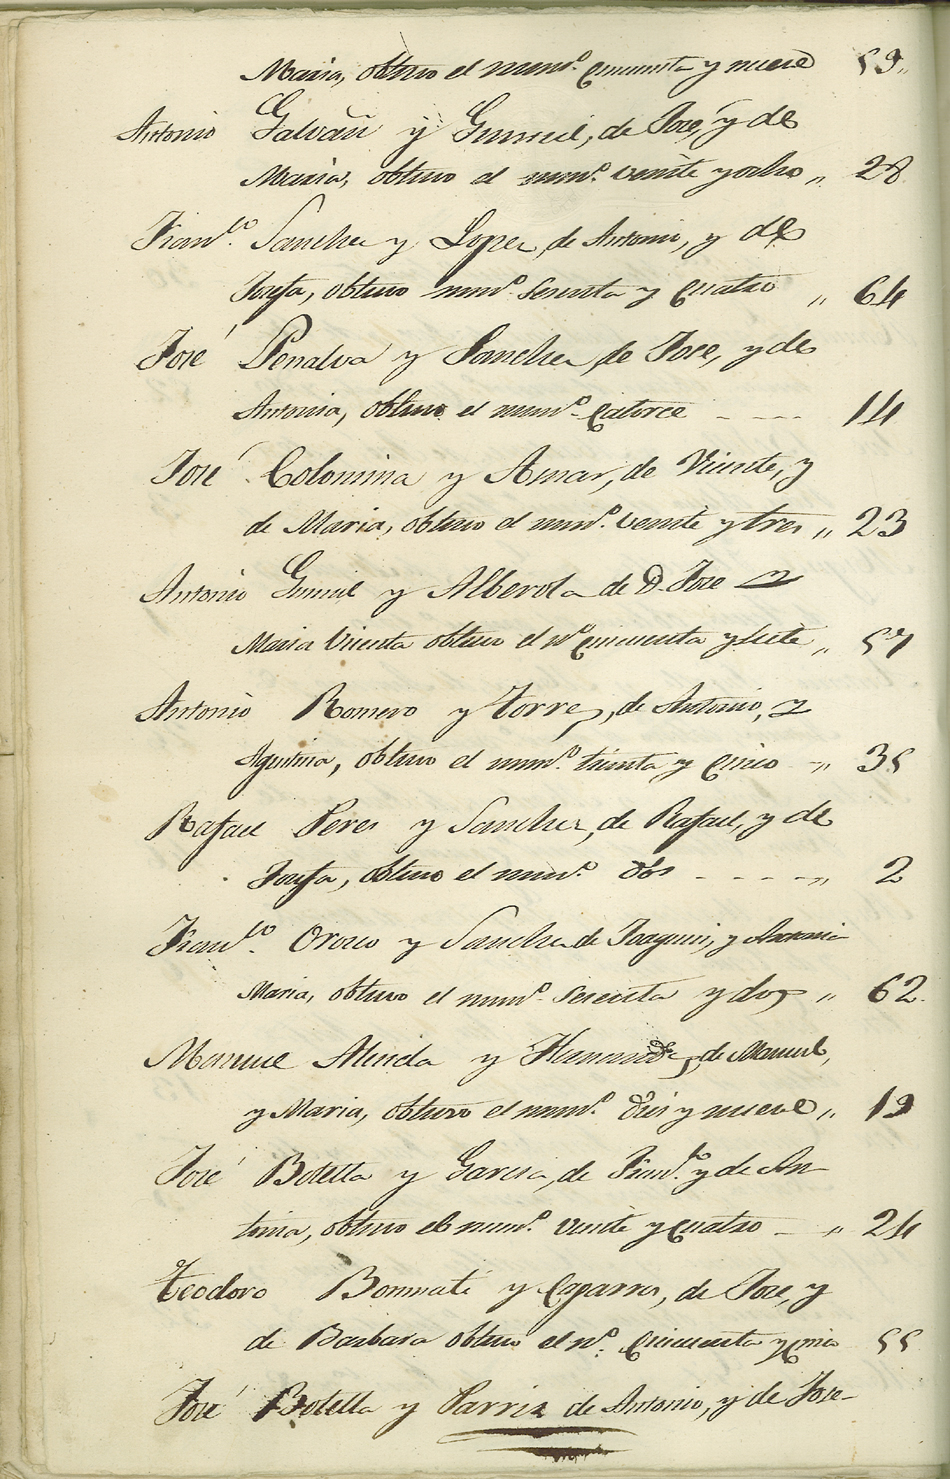 Maria, obtuvo el num.º cincuenta y nueve 59„
Antonio Galvañ y Gumiel, de José, y de
Maria, obtuvo el num.º veinte y ocho „ 28
Fran.co Sanchez y Lopez, de Antonio, y de
Josefa, obtuvo num.º sesenta y cuatro „ 64
José Penalva y Sanchez, de José, y de
Antonia, obtuvo el num.º catorce - - - - 14
José Colomina y Aznar, de Vicente, y
de Maria, obtuvo el num.º veinte y tres „ 23
Antonio Gumiel y Alberola de D. José y
Maria Vicenta obtuvo el nº cincuenta y siete „ 57
Antonio Romero y Torres, de Antonio, y
Agustina, obtuvo el num.º treinta y cinco - „ 35
Rafael Peres y Sanchez, de Rafael, y de
Josefa, obtuvo el num.º dos - - - - „ 2
Fran.co Orozco y Sanchez de Joaquin, y Antonia
Maria, obtuvo el num.º sesenta y dos „ 62.
Manuel y Hernandez, de Manuel,
y Maria, obtuvo el num.º diez y nueve „ 19
José Botella y Garcia, de Fran.co y de An-
tonia, obtuvo el num.º veinte y cuatro - „ 24
Teodoro Bonmati y Caparros, de José, y
de Barbara obtuvo el nº. cincuenta y cinco 55
José Botella y Parris de Antonio, y de Jose-